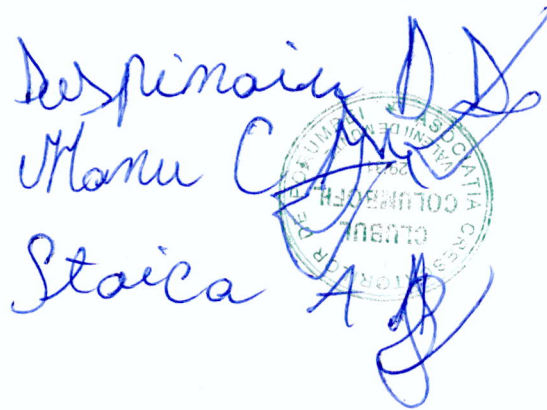 Despinoiu D
Manu C
Stoica A
ASOCIATIA CRESCATORILOR DE PORUMBEI
VALENII DE MUNTE
CLUBUL
COLUMBOFIL